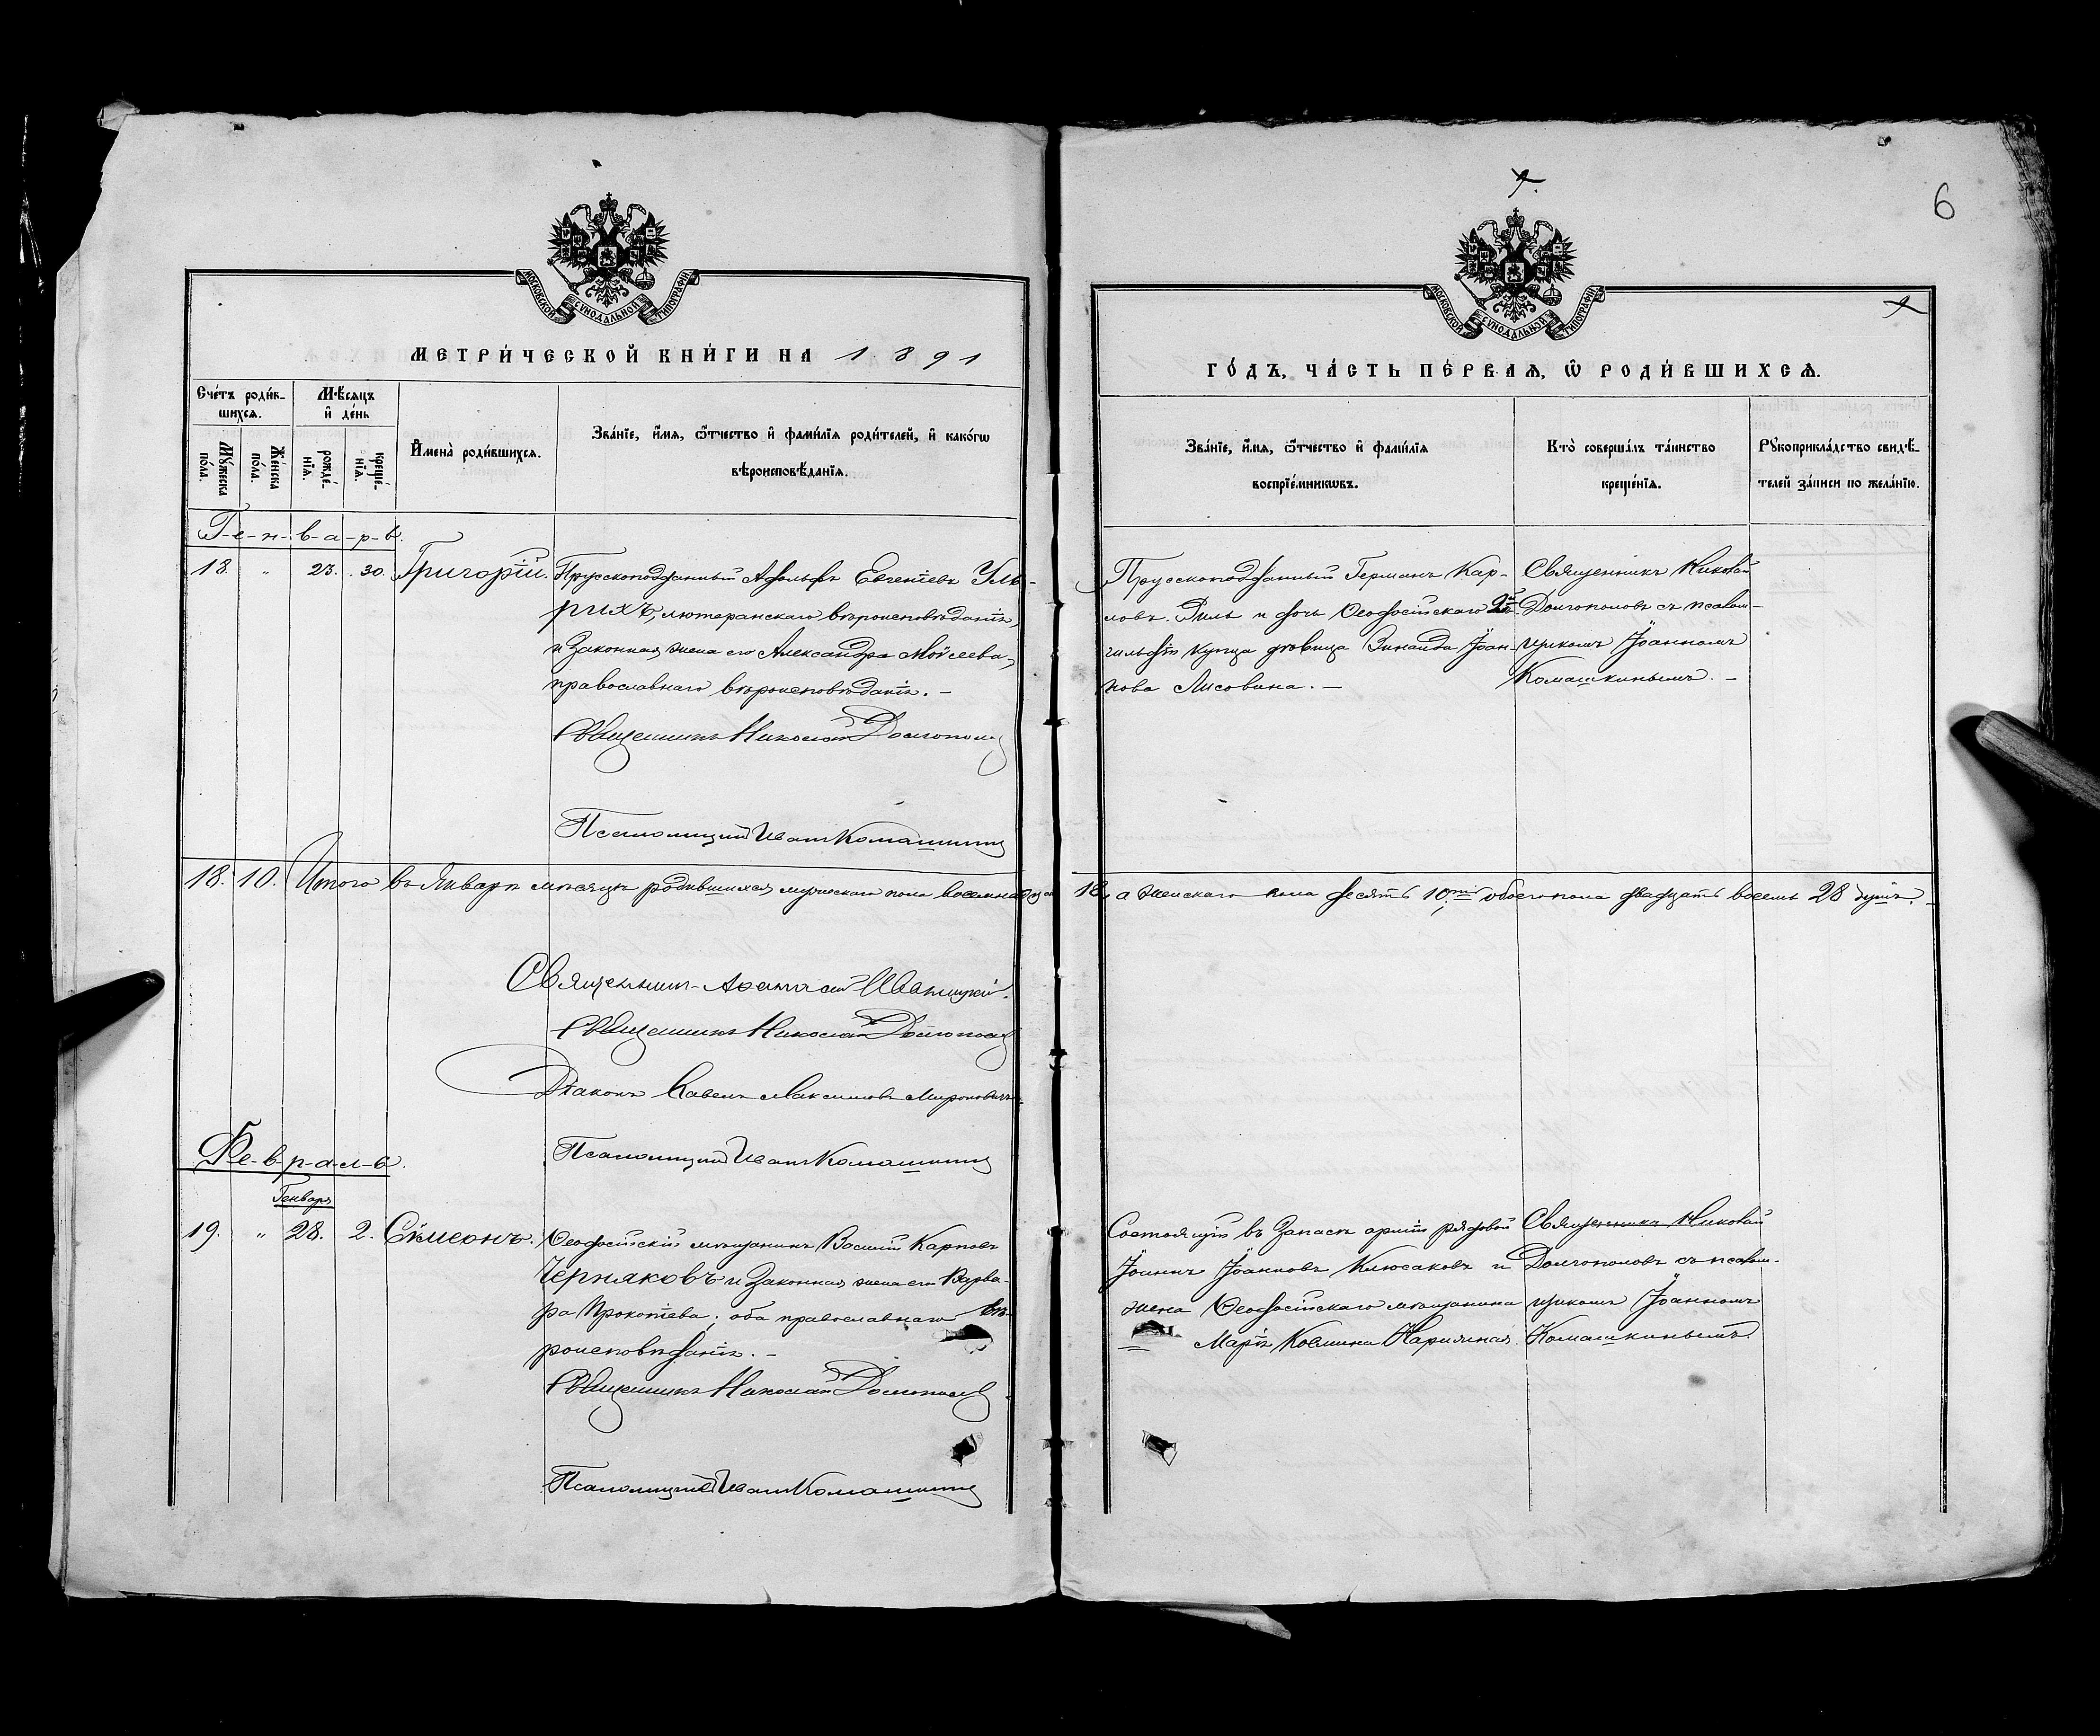 МОСКОВСКОЙ СѴНОДАЛЬНОЙ ТИПОГРАФІИ
МЕТРИ́ЧЕСКОЙ КНИ́ГИ НА 1891
Сче́тъ роди́в-
шихсѧ.
Мѣ́сяцъ
и҆ де́нь
Мꙋ́жеска
по́ла.
Же́нска
по́ла.
рожде́-
нїѧ.
креще́-
нїѧ.
И҆мена̀ роди́вшихсѧ.
Зва́нїе, и҆́мѧ, ѻ҆́тчество и҆ фами́лїѧ роди́телей, и҆ како́гѡ
вѣроисповѣ́данїѧ.
Г-е-н-в-а-р-ь.
18. " 23. 30. Григорій. Прусскоподданный Адольфъ Евгеніевъ Уль-
рихъ, лютеранскаго вѣроисповѣданія,
и Законная жена его Александра Моѵсеева,
православнаго вѣроисповѣданія. –
Священникъ Николай Долгополов
Псаломщикъ Иван Комашкинъ
18. 10. Итого въ Январѣ мѣсяцѣ родившихся мужескаго пола восемнадцать
Священникъ Аѳанасій Иваницкій.
Священникъ Николай Долгополов
Діаконъ Павелъ Максимовъ Мироновичъ
Псаломщикъ Иван Комашкинъ
Фе-в-р-а-л-ь.
Генваря
19. " 28. 2. Сѵмеонъ. Ѳеодосійскій мѣщанинъ Василій Карповъ
Черняковъ и Законная жена его Варва-
ра Прокопіева; оба православнаго вѣ-
роисповѣданія. –
Священникъ Николай Долгополов
Псаломщикъ Иван Комашкинъ
6
МОСКОВСКОЙ СѴНОДАЛЬНОЙ ТИПОГРАФІИ
ГО́ДЪ, ЧА́СТЬ ПЕ́РВАѦ, Ѽ РОДИ́ВШИХСѦ.
Зва́нїе, и҆́мѧ, ѻ҆́тчество и҆ фами́лїѧ
воспрїе́мникѡвъ.
Кто̀ соверша́лъ та́инство
креще́нїѧ.
Рꙋкоприкла́дство свидѣ́-
телей за́писи по жела́нїю.
Прусскоподданный Германъ Кар-
ловъ Гиль и дочь Ѳеодосійскаго 2й
гильдіи купца дѣвица Зинаида Іоан-
нова Лисовина. –
Священникъ Николай
Долгополовъ съ псалом-
щикомъ Іоанномъ
Комашкинымъ. –
18, а женскаго пола десять 10, обоего пола двадцать восемь 28 душъ.
Состоящій въ Запасѣ арміи рядовой
Іоаннъ Іоанновъ Клюсаковъ и
жена Ѳеодосійскаго мѣщанина
Марія Космина
Священника Николай
Долгополовъ съ псалом-
щикомъ Іоанномъ
Комашкинымъ.